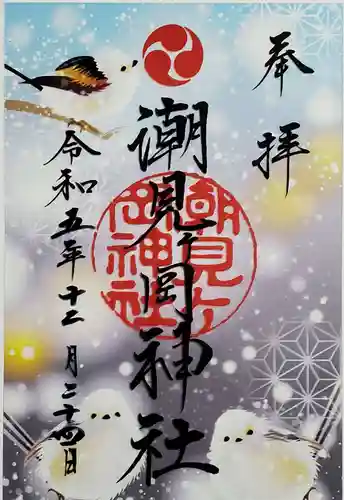 奉拝
潮見ヶ岡神社
潮見ヶ岡神社
令和五年十二月二十四日